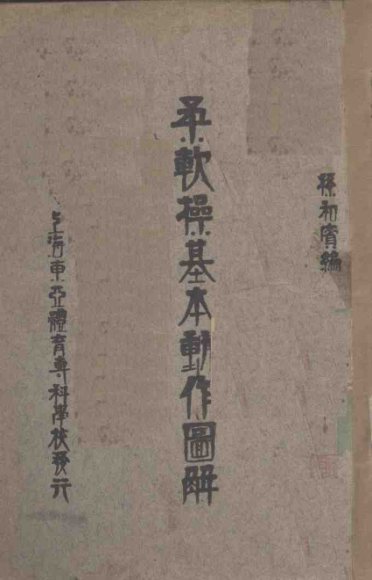 孫初賓編
柔軟操基本動作圖解
上海東亞體育專科學校發行